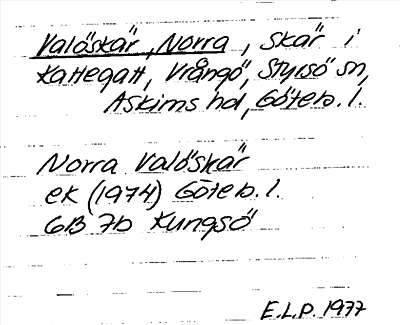 Valöskär, Norra, Skär i
Kattegatt, Vrångö, Styrsö sn,
Askims hd, Göteb. l.
Norra Valöskär
ek (1974) Göteb. l.
6B 7b Kungsö
E.L.P. 1977